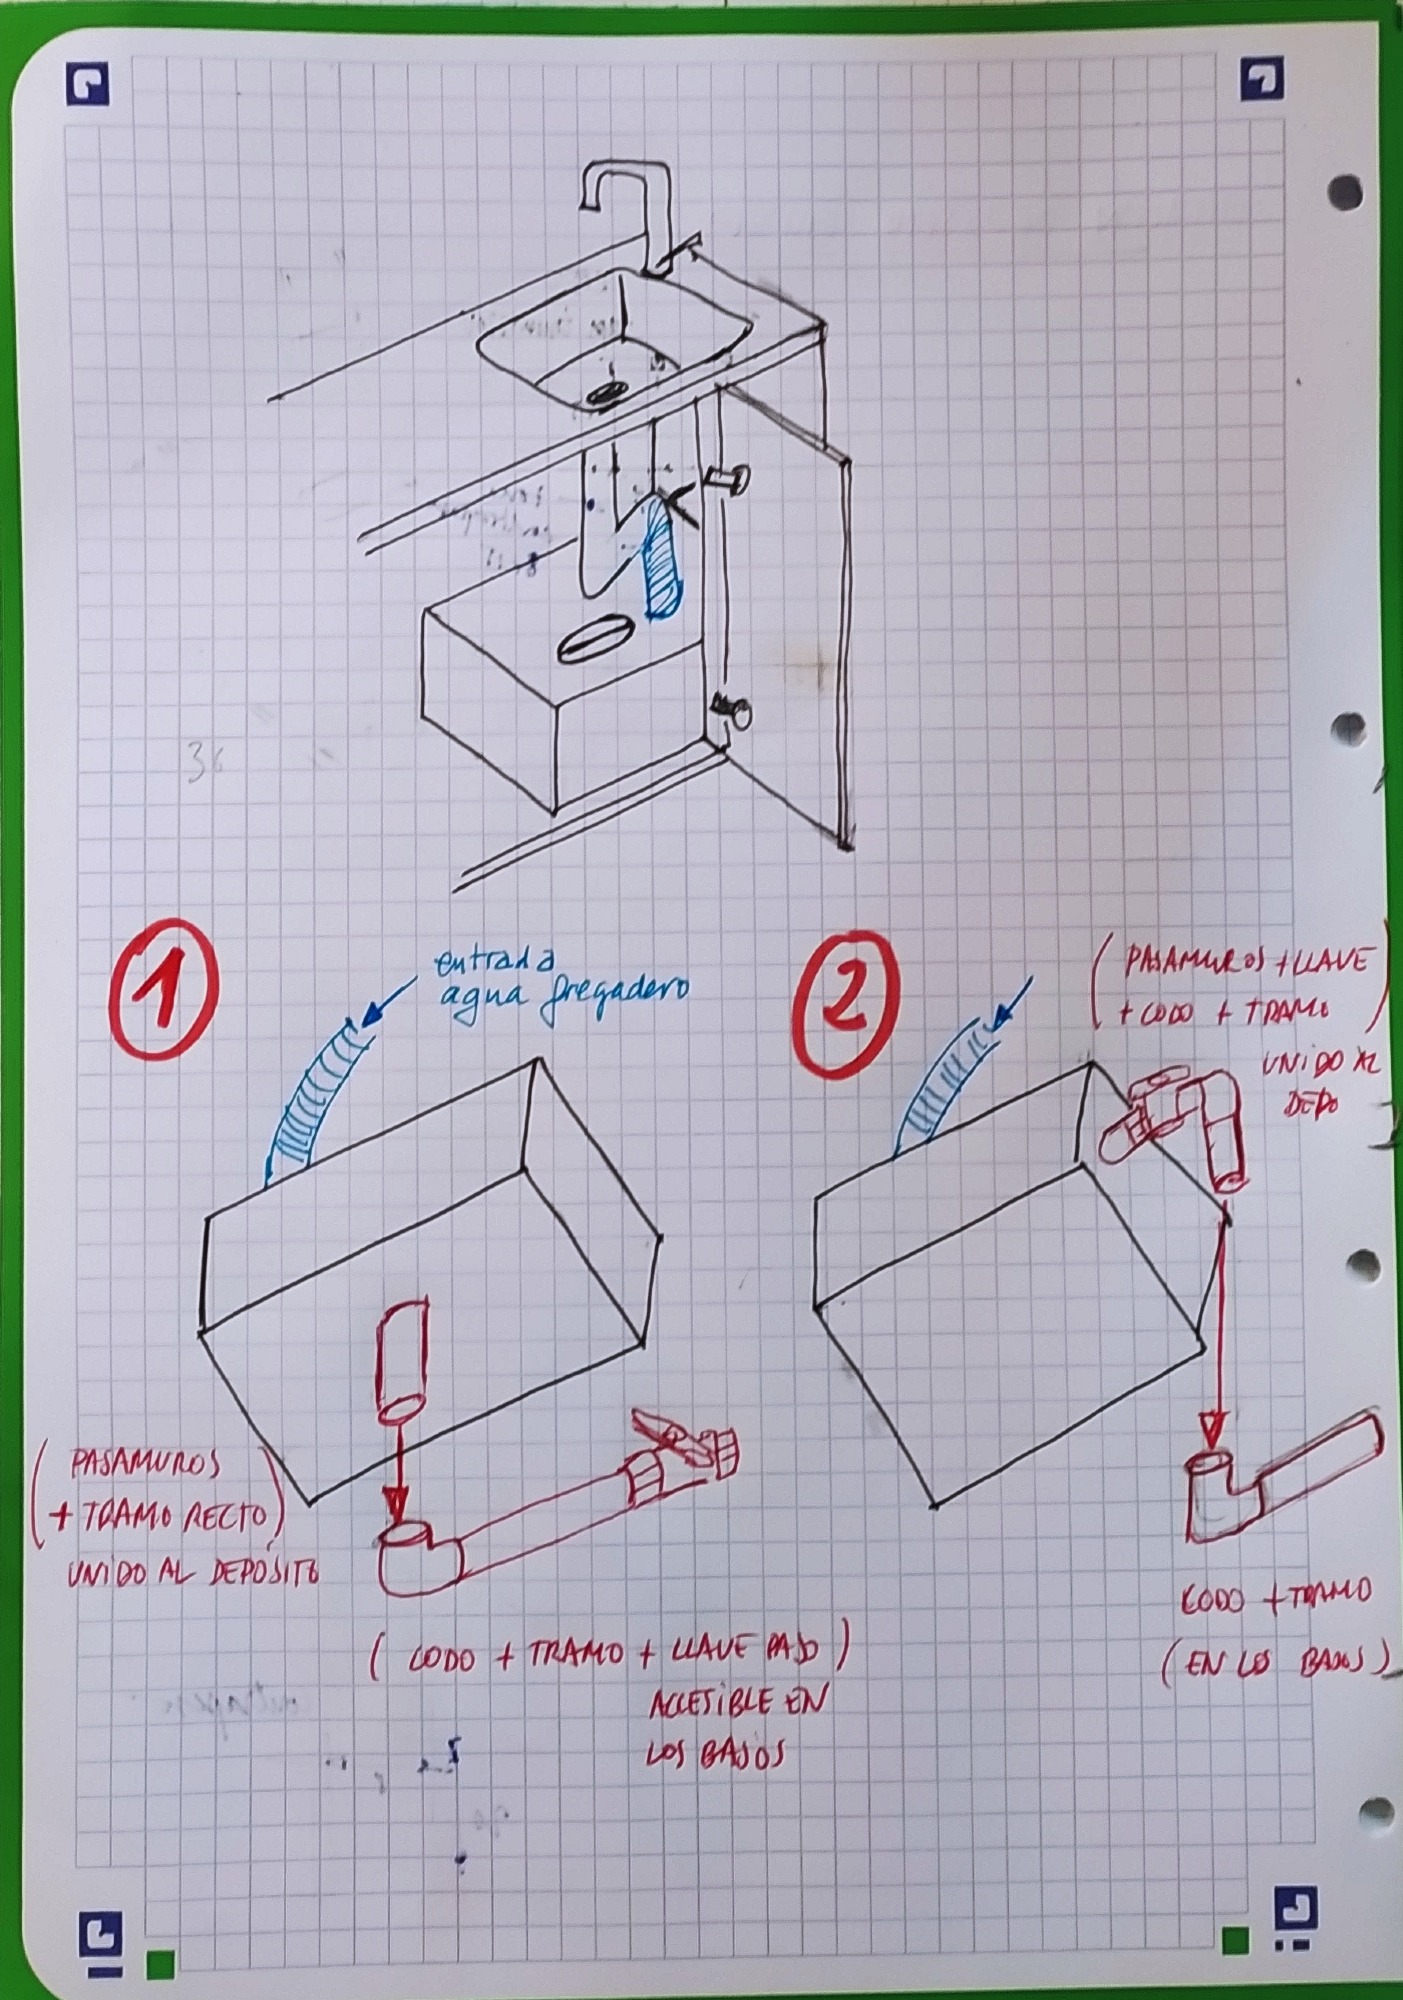 36
1
entrada
agua fregadero
(PASAMUROS
+ TRAMO RECTO)
UNIDO AL DEPÓSITO
(CODO + TRAMO + LLAVE PASO)
ACCESIBLE EN
LOS BAJOS
2
(PASAMUROS + LLAVE
+ CODO + TRAMO)
UNIDO AL
DEPO
CODO + TRAMO
(EN LOS BAJOS)